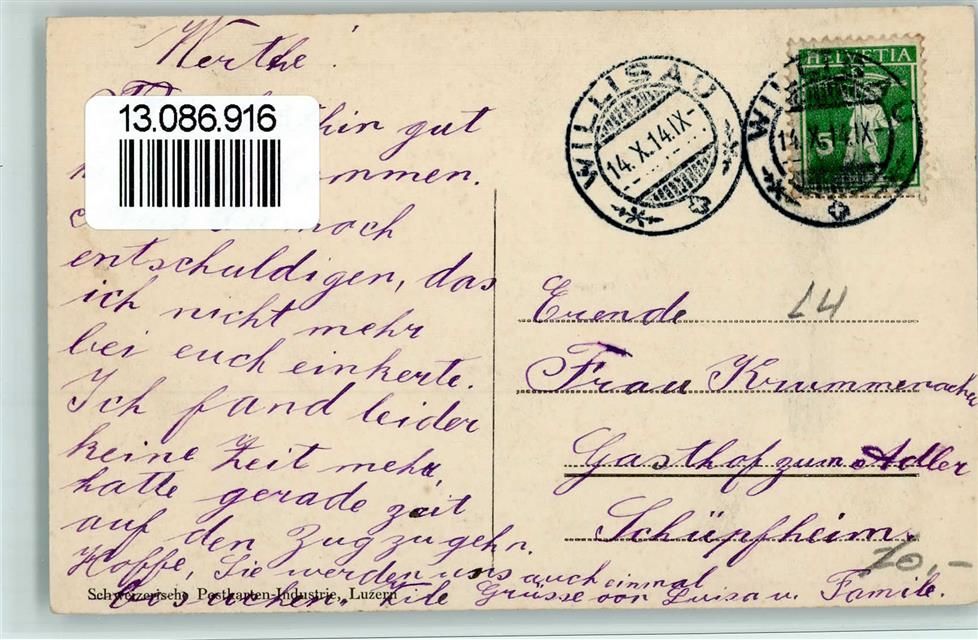 Werthe!
13.086.916
hin gut
mmen.
noch
entschuldigen, das
ich nicht mehr
bei euch einkerte.
Ich fand leider
keine Zeit mehr,
hatte gerade zeit
auf den Zug zu gehn.
Hoffe, Sie werden uns auch einmal
besuchen. Grüsse von Luisa u. Familie.
Schweizerische Postkarten-Industrie, Luzern
WILLISAU
14.X.14.IX-
HELVETIA
5
WILLISAU
14.X.14.IX-
L4
Frau Krummenacher
Gasthof zum Adler
Schüpfheim.
10,-